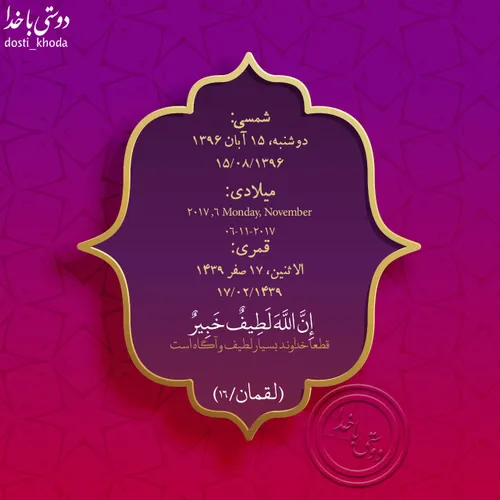 دوستی با خدا
dosti_khoda
شمسی:
دوشنبه، ۱۵ آبان ۱۳۹۶
۱۵/۰۸/۱۳۹۶
میلادی:
۲۰۱۷ ,۶ Monday, November
۰۶-۱۱-۲۰۱۷
قمری:
الاثنین، ۱۷ صفر ۱۴۳۹
۱۷/۰۲/۱۴۳۹
إِنَّ اللَّهَ لَطِيفٌ خَبِيرٌ
قطعا خداوند بسیار لطیف و آگاه است
(لقمان/۱۶)
دوستی با خدا